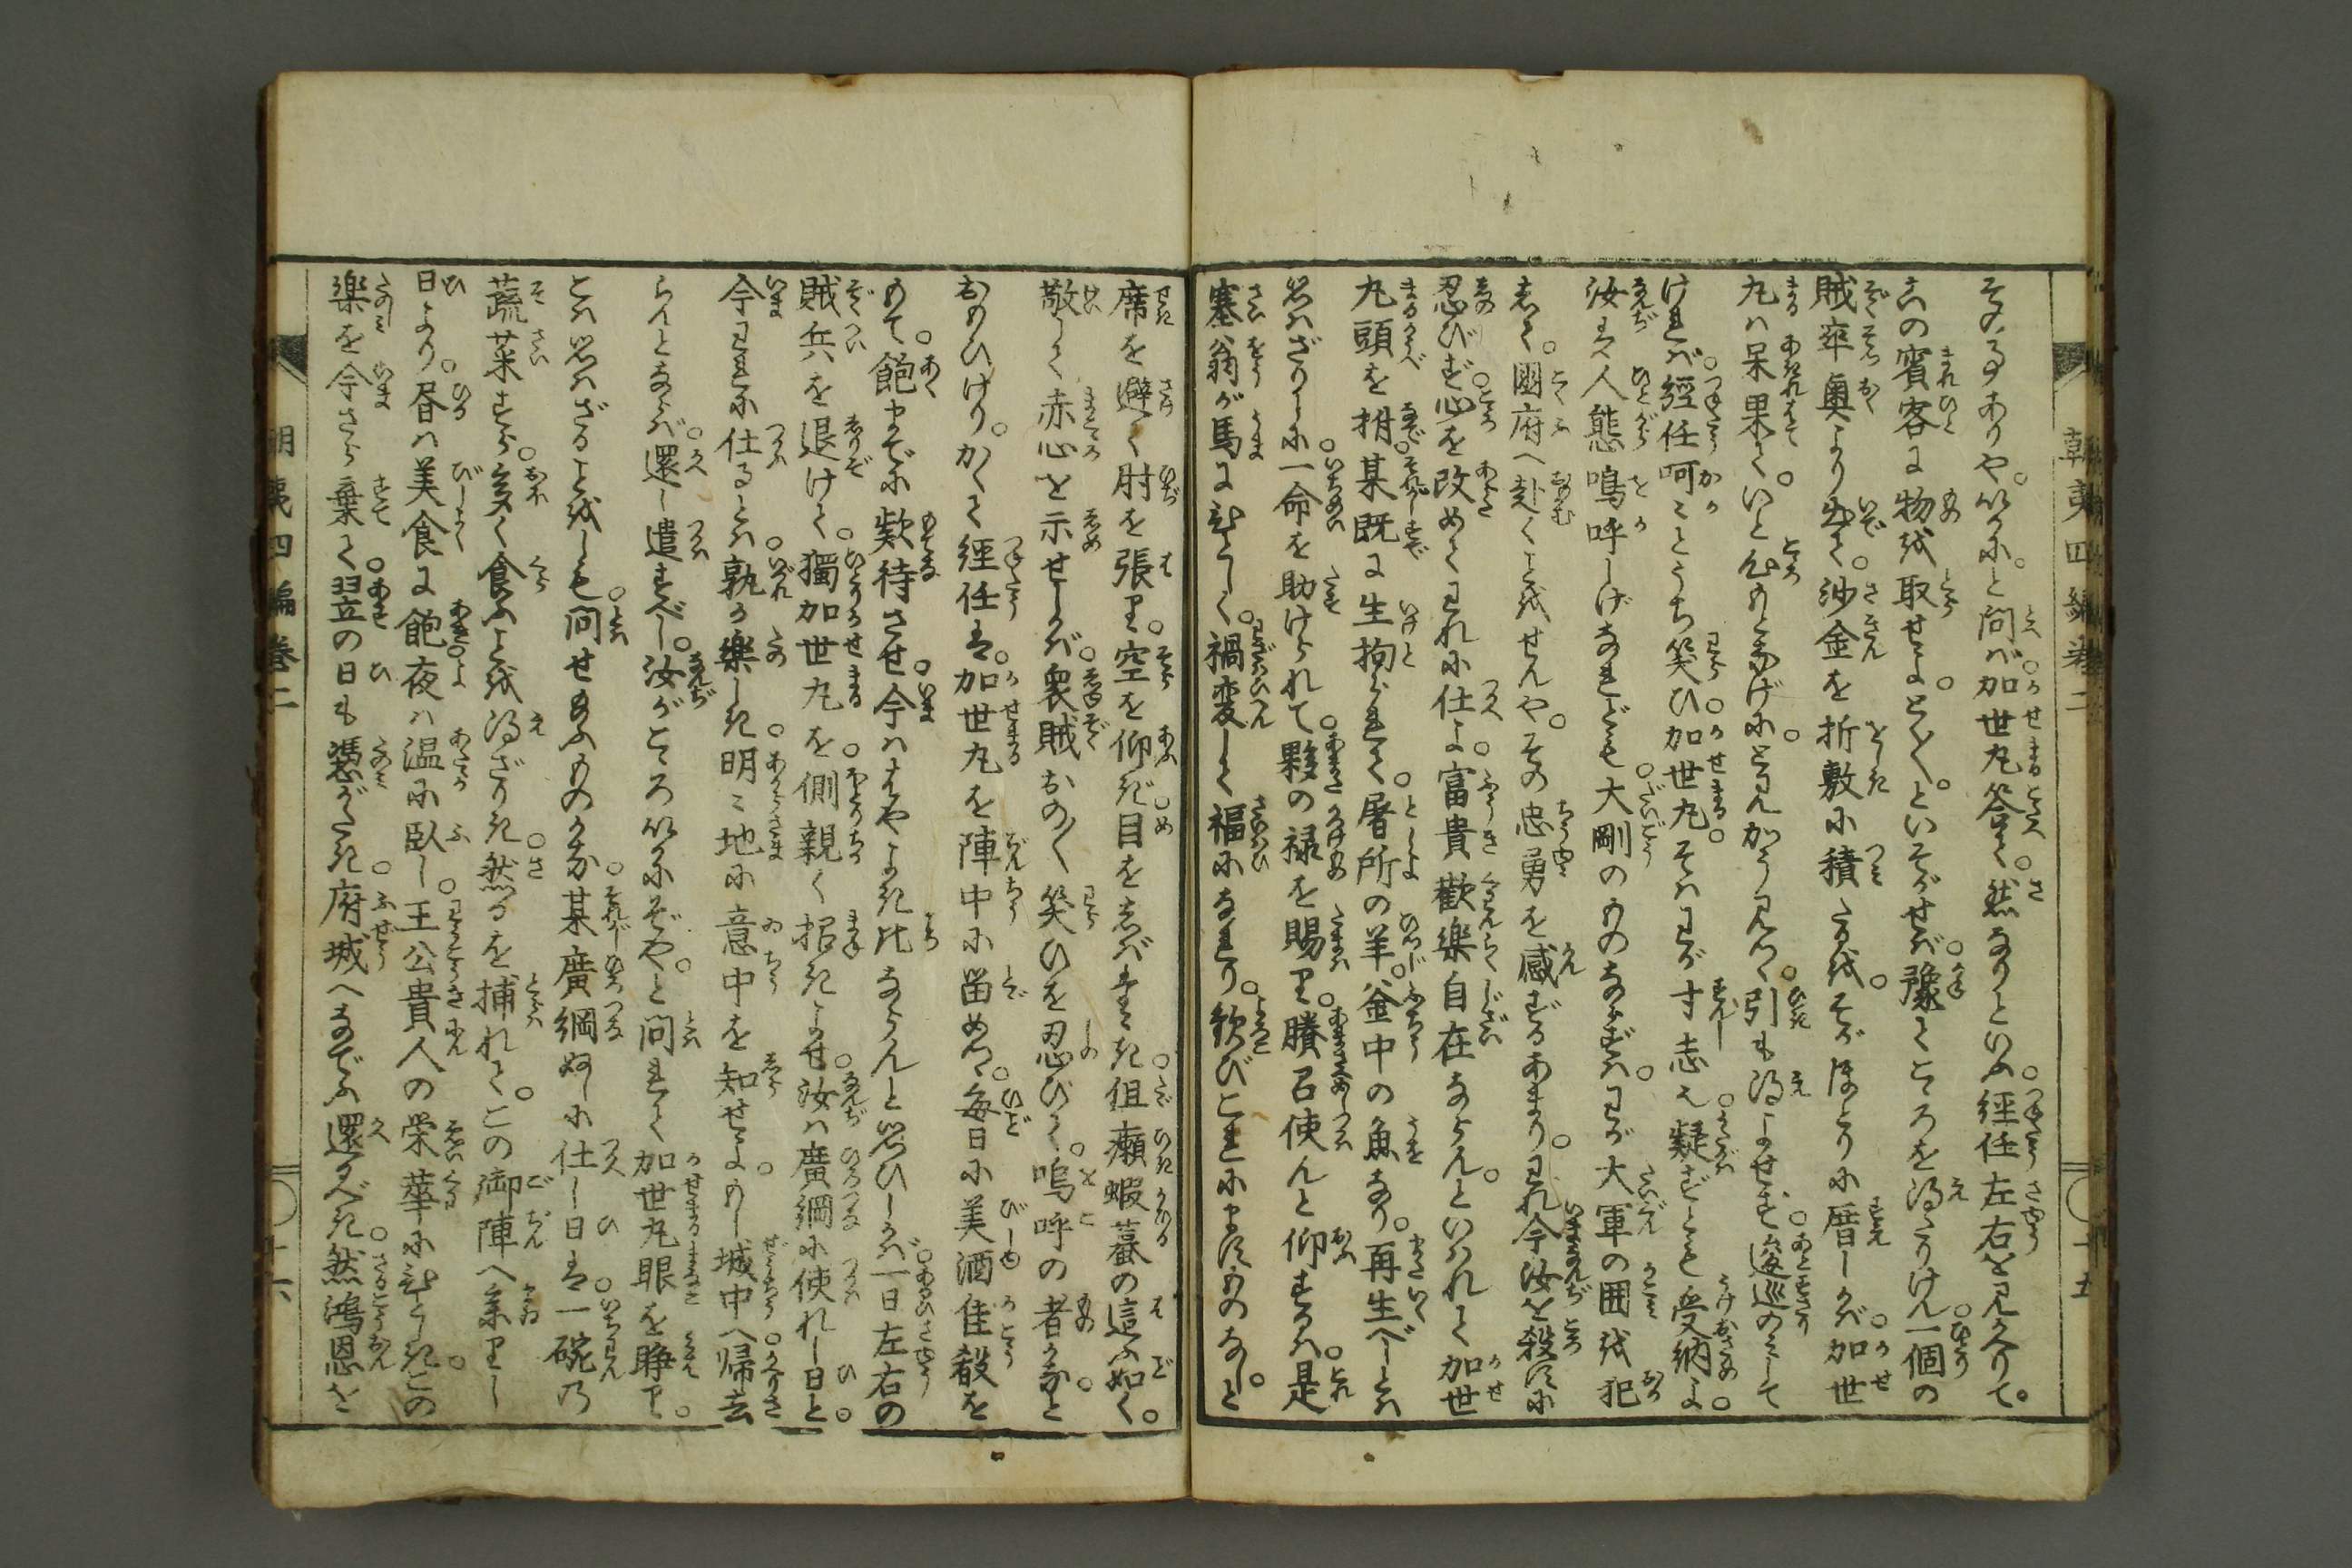 朝夷四編巻二
十五
その事ありや。いかにと問ば加世丸答て。然なりといふ。經任左右を見かへりて。
この賓客に物を取せよとく〳〵。といそがせば豫てこゝろを得たりけん一個の
賊卒奥より出て。沙金を折敷に積たるを。そがほとりに居しかば加世
丸は呆果て。いと
引も得よせず逡巡のみして
ければ經任呵々とうち笑ひ加世丸。そはわが寸志也疑ずとも受納よ。
汝は人態嗚呼しげなれども大剛のものならずは。わが大軍の囲を犯
して。國府へ赴くことをせんや。その忠勇を感ずるあまり。われ今汝を殺に
忍びず心を改めてわれに仕よ。富貴歡樂自在ならん。といはれて加世
丸頭を拊。某既に生拘られて。屠所の羊。釜中の魚なり。再生べしとは
思はざりしに一命を助けられて。夥の禄を賜り。賸召使んと仰するは。是
塞翁が馬にひとしく。禍変じて福になれり。欽びこれにますものなし。と
席を避て肘を張り。空を仰ぎ目をしばたゝき疽癩蝦蟇の這ふ如く。
敬して赤心を示せしかば。衆賊おの〳〵笑ひを忍びて。嗚呼の者かなと
おもひけり。かくて經任は。加世丸を陣中に留めつ。毎日に美酒佳殽を
もて。飽までに欵待させ。今ははやよき比ならんと思ひしかば一日左右の
賊兵を退けて。獨加世丸を側親く招きよせ。汝は廣綱に使れし日と。
今われに仕るとは孰か樂しき。明々地に意中を知せよ。もし城中へ帰去
らんとならば。還し遣すべし。汝がこゝろいかにぞや。と問れて加世丸眼を睜り。
とは思はざることをしも問せ給ふものかな某廣綱ぬしに仕し日は。一碗の
蔬菜すら。多く食ふことを得ざりき然るを捕れて。この御陣へ参りし
日より。昼は美食に飽夜は温に臥し。王公貴人の栄華にひとしきこの
樂を今さら棄て。翌の日も憑がたき。府城へなでふ還るべき。然鴻恩を
朝夷四編巻二
十六